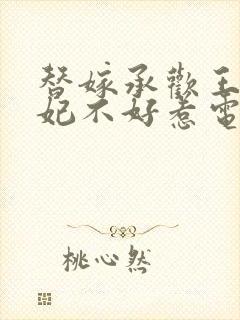 替嫁承歡王
妃不好惹電
桃心然